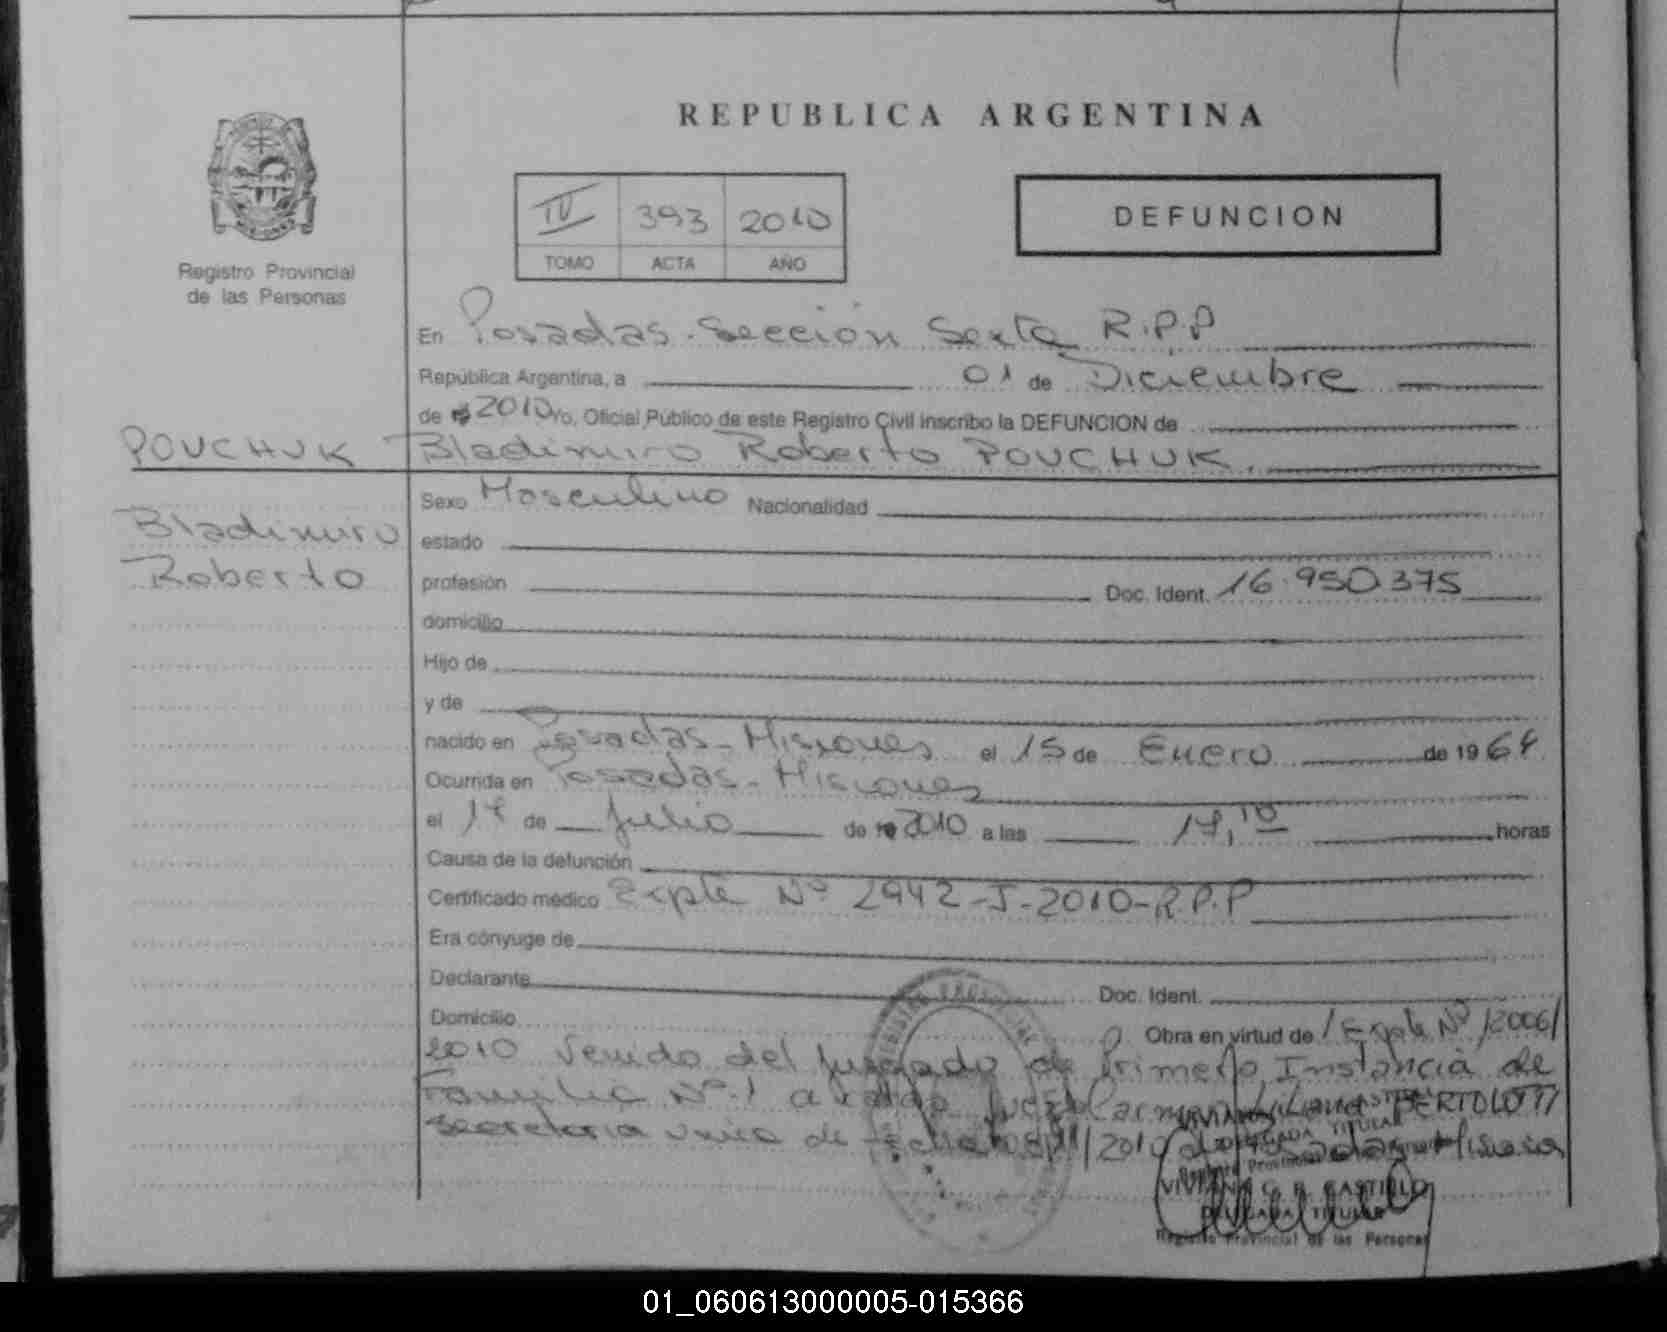 REPUBLICA ARGENTINA
IV 393 2010
TOMO ACTA AÑO
DEFUNCION
Registro Provincial
de las Personas
En Posadas. Sección Sexta R.P.P
República Argentina, a 01 de Diciembre
de 2010 Yo, Oficial Público de este Registro Civil inscribo la DEFUNCION de
POUCHUK Bladimiro Roberto POUCHUK.
Bladimiro
Roberto
Sexo Masculino Nacionalidad
estado
profesión Doc. Ident. 16.950.375
domicilio
Hijo de
y de
nacido en Posadas - Misiones el 15 de Enero de 1964
Ocurrida en Posadas - Misiones
el 17 de Julio de 2010 a las 17,10 horas
Causa de la defunción
Certificado médico Expte Nº 2942-J-2010-R.P.P
Era cónyuge de
Declarante Doc. Ident.
Domicilio Obra en virtud de / Expte Nº /2006/
2010 Venido del Juzgado de Primera Instancia de
Familia Nº 1 a cargo BERTOLOTTI
Secretaria Unica de fecha /2010 de Posadas Misiones
DELEGADA TITULAR
Registro Provincial
VIVIANA C. R. CASTILLO
DELEGADA TITULAR
Registro Provincial de las Personas
01_060613000005-015366